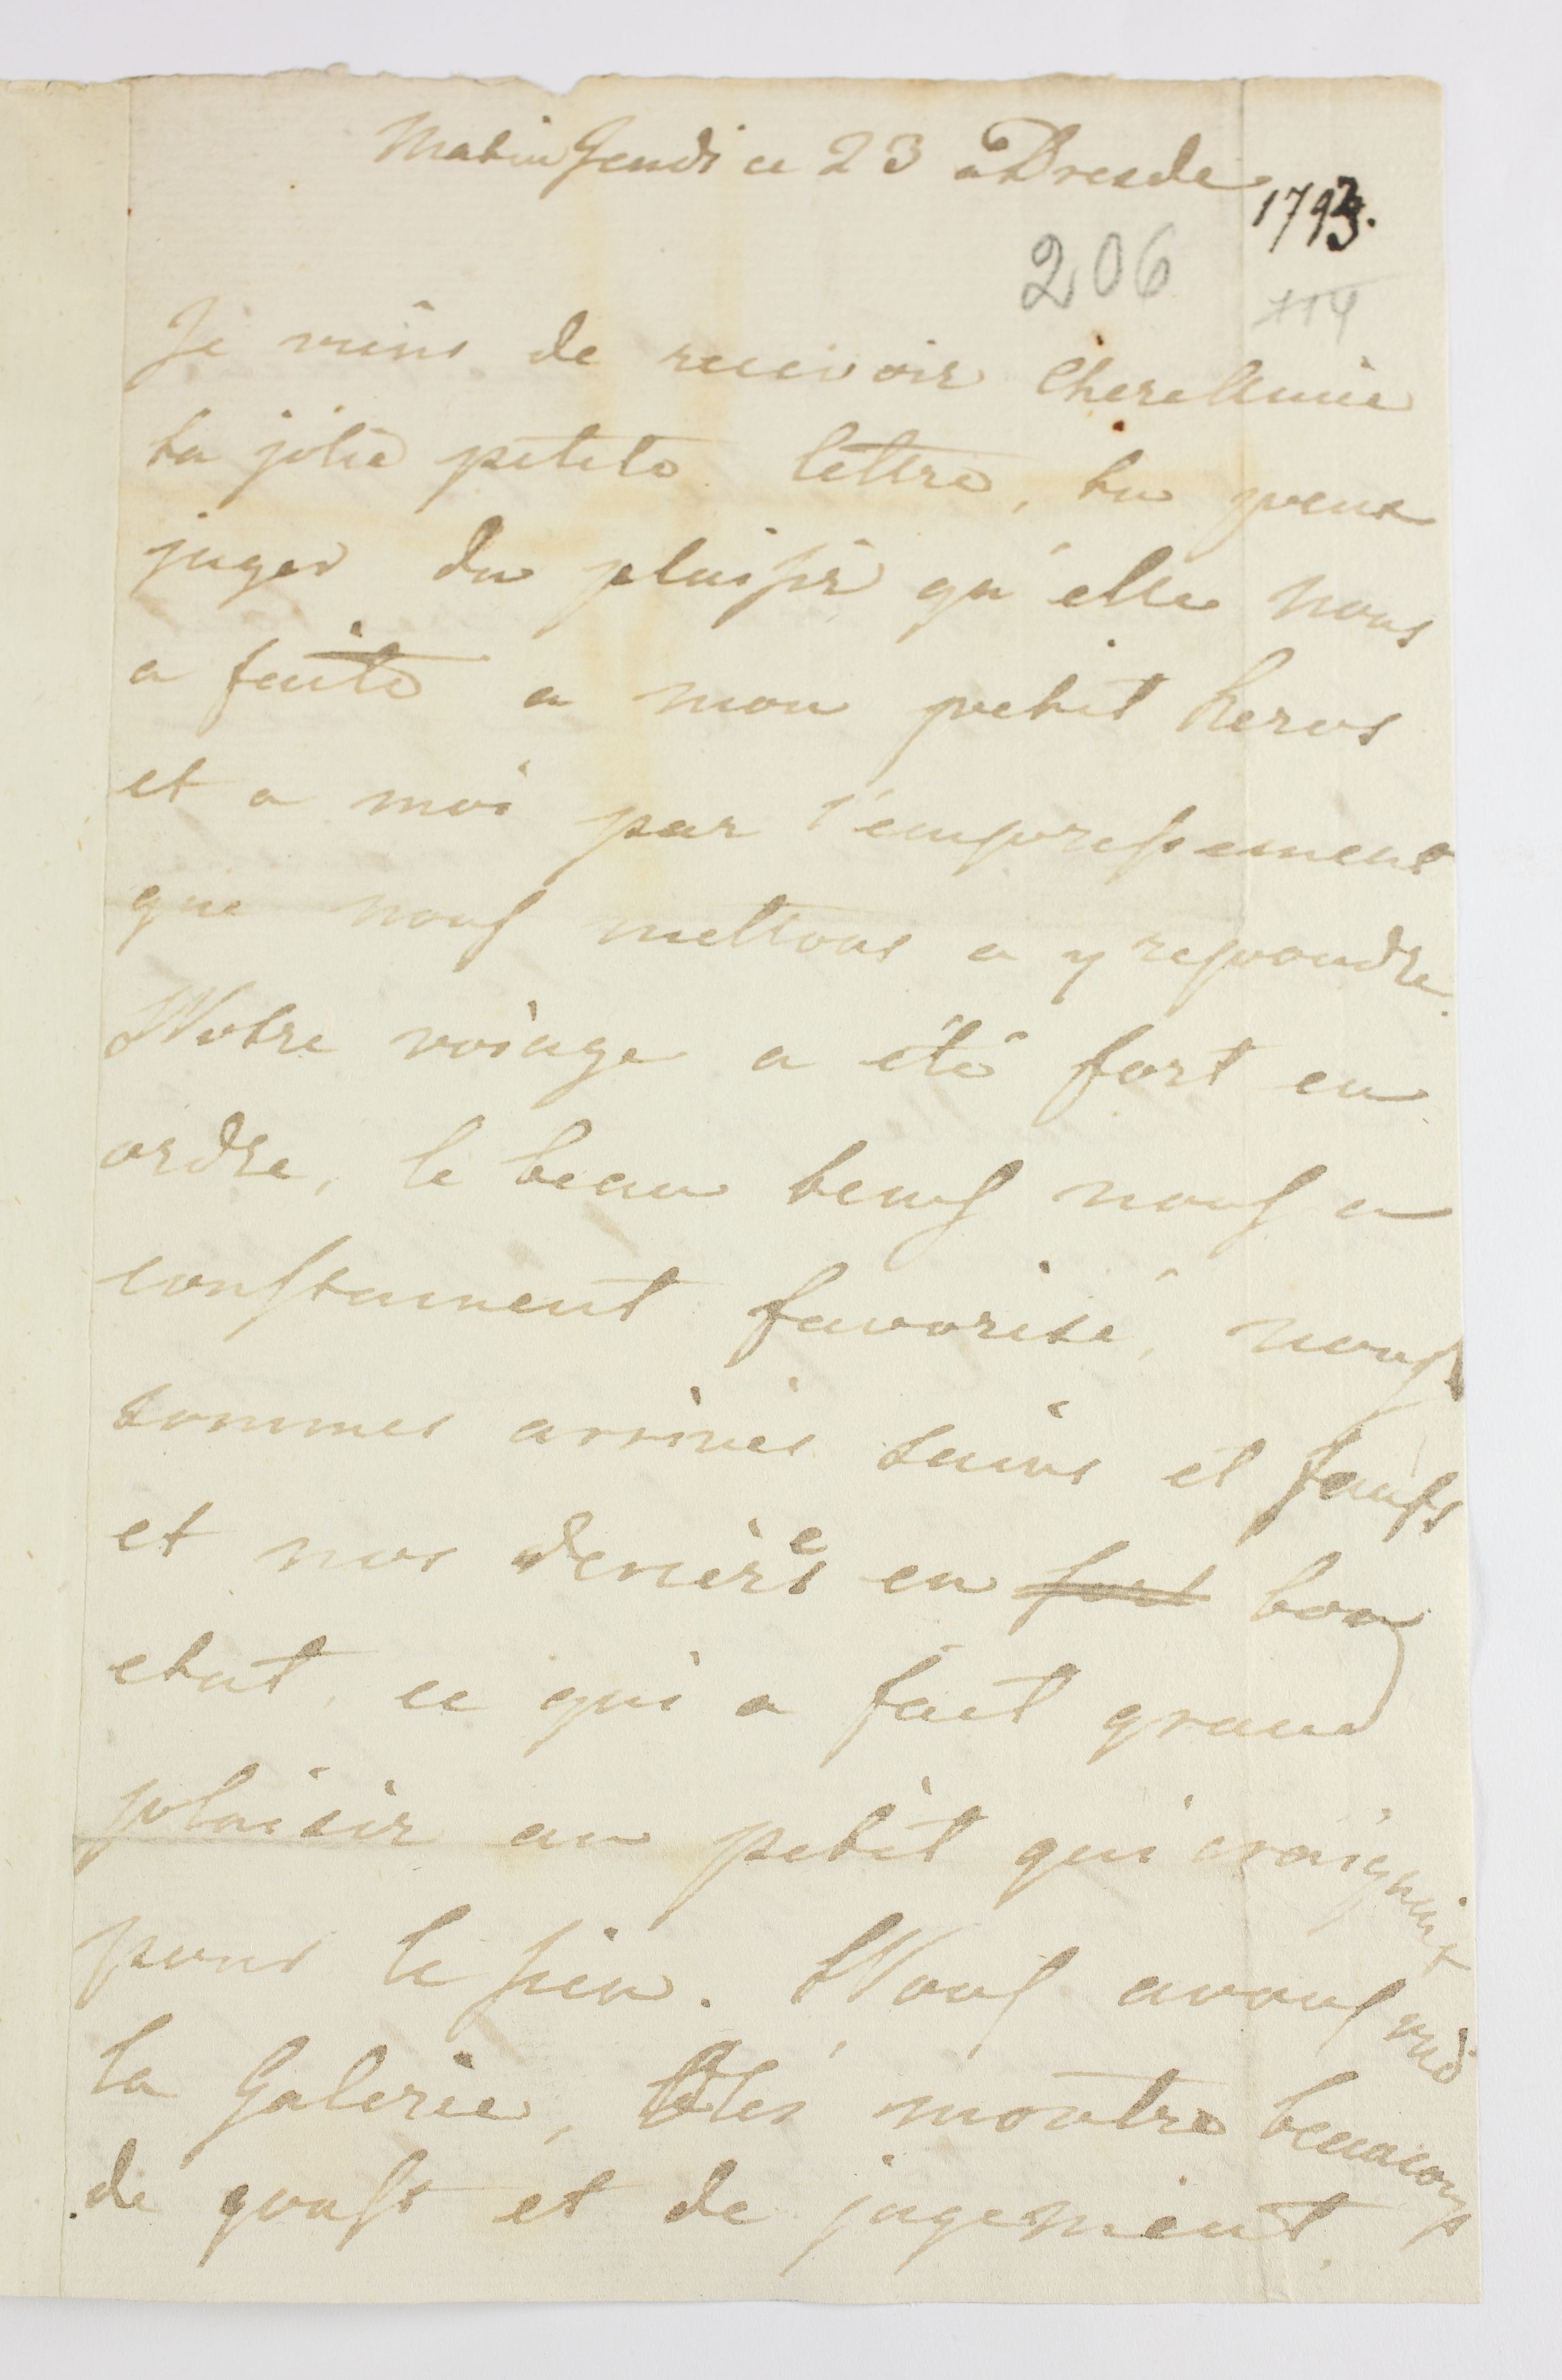 Matin Jeudi ce 23 a Dresde
1793.
206
114
Je viens de recevoir Chere Amie
ta jolie petite lettre, tu peux
juger du plaisir qu'elle nous
a faite a mon petit heros
et a moi par l'empressement
que nous mettons a y repondre.
Notre voiage a été fort en
ordre, le beau tems nous a
constament favorisé, nous
sommes arrivés sains et saufs
et nos derieres en fort bon
etat, ce qui a fait grand
plaisir au petit qui craignait
pour le sien. Nous avons vus
la Galerie, montre beaucoup
de goust et de jugement.